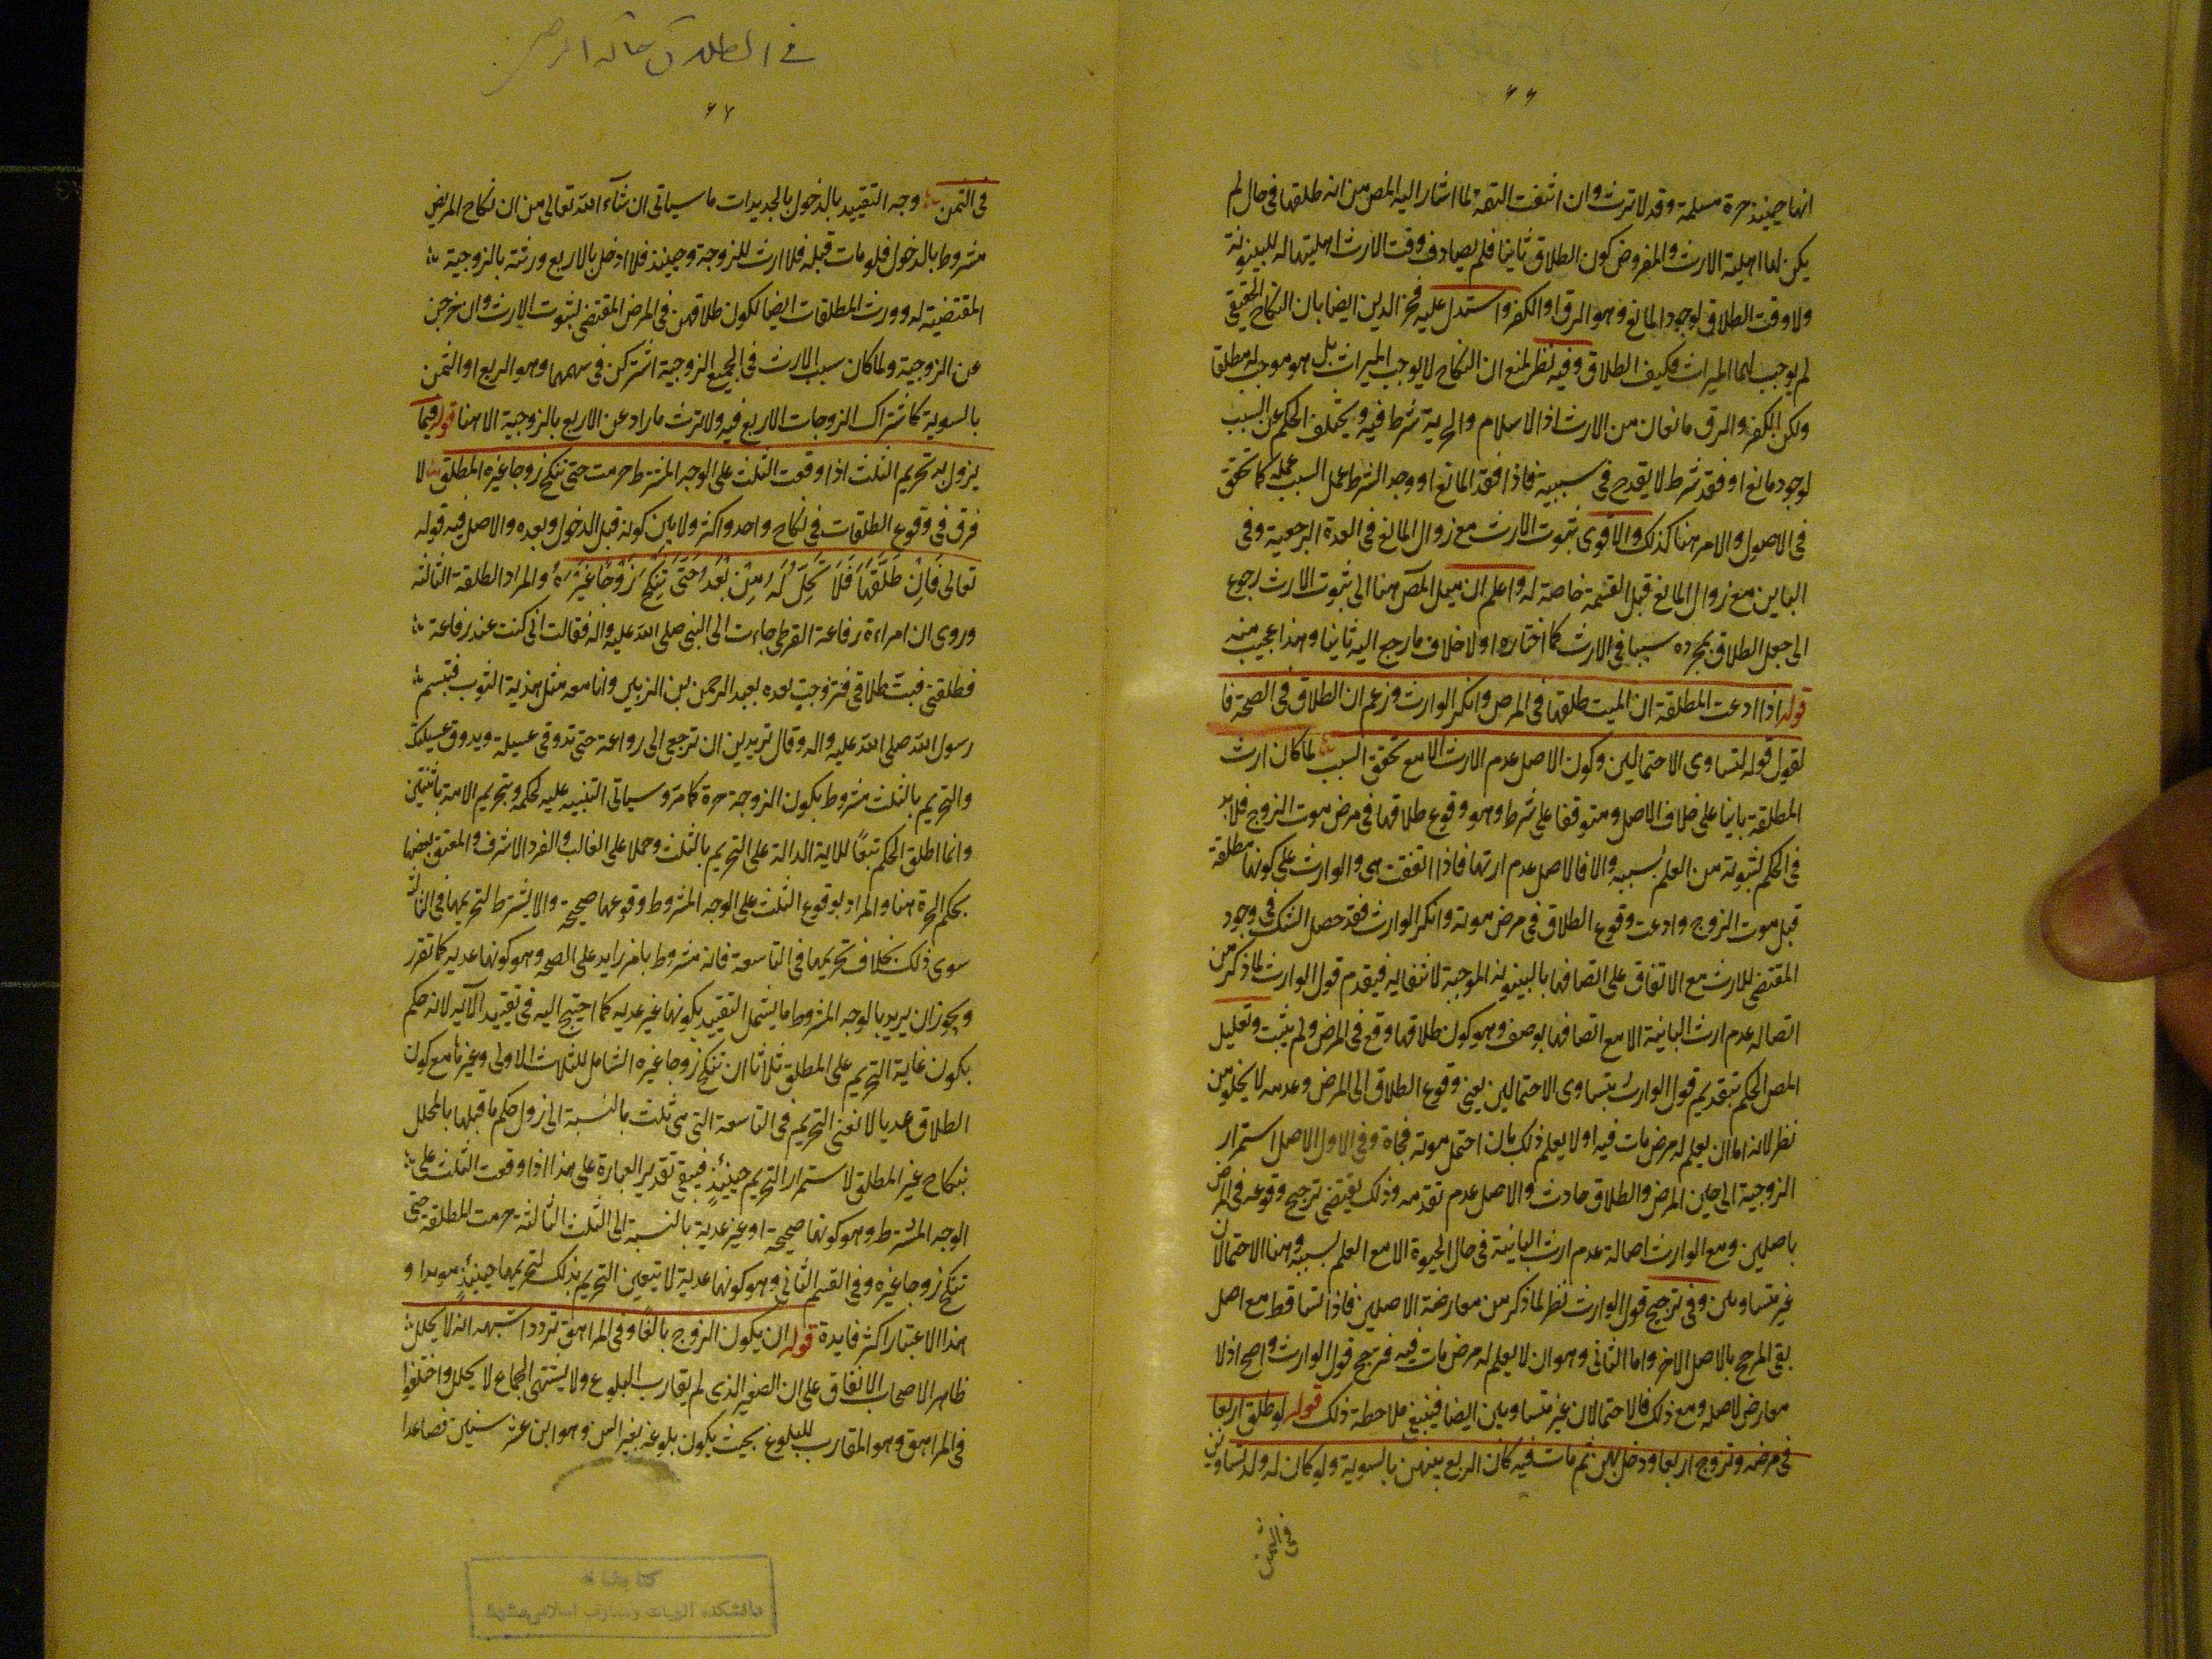 ۶۶
انها حینئذ حرة مسلمة وقد لا ترث وان انتفت التهمة لما اشار الیه المص من انه طلقها فی حال لم
یکن لها اهلیة الارث والمفروض کون الطلاق بائنا فلم یصادف وقت الارث اهلیتها له للبینونة
ولا وقت الطلاق لوجود المانع وهو الرق او الکفر واستدل علیه فخر الدین ایضا بان النکاح الحقیقی
لم یوجب لهما المیراث فکیف الطلاق وفیه نظر لمنع ان النکاح لا یوجب المیراث بل هو موجب له مطلقا
ولکن الکفر والرق مانعان من الارث اذ الاسلام والحریة شرط فیه ویختلف الحکم عن السبب
لوجود مانع او فقد شرط لا یقدح فی سببیته فاذا فقد المانع او وجد الشرط عمل السبب عمله کما تحقق
فی الاصول والامر هنا کذلک والاقوی ثبوت الارث مع زوال المانع فی العدة الرجعیة وفی
الباین مع زوال المانع قبل القسمة خاصة له واعلم ان میل المص هنا الی ثبوت الارث رجوع
الی جعل الطلاق بمجرده سببا فی الارث کما اختاره اولا خلاف ما رجع الیه ثانیا وهذا عجیب منه
قوله اذا ادعت المطلقة ان المیت طلقها فی المرض وانکر الوارث وزعم ان الطلاق فی الصحة فا
لقول قوله لتساوی الاحتمالین وکون الاصل عدم الارث الا مع تحقق السبب لما کان ارث
المطلقة باینا علی خلاف الاصل ومتوقفا علی شرط وهو وقوع طلاقها فی مرض موت الزوج فلابد
فی الحکم بثبوته من العلم بسببه والا فالاصل عدم ارثها فاذا اتفقت هی والوارث علی کونها مطلقة
قبل موت الزوج وادعت وقوع الطلاق فی مرض موته وانکر الوارث فقد حصل الشک فی وجود
المقتضی للارث مع الاتفاق علی اتصافها بالبینونة الموجبة لانتفایه فیقدم قول الوارث لما ذکر من
اصالة عدم ارث البائنة الا مع اتصافها بوصف وهو کون طلاقها وقع فی المرض ولم یثبت وتعلیل
المص الحکم بتقدیم قول الوارث بتساوی الاحتمالین یعنی وقوع الطلاق الی المرض وعدمه لا یخلو من
نظر لانه اما ان یعلم له مرض مات فیه او لا یعلم ذلک بان احتمل موته فجاة وفی الاول الاصل استمرار
الزوجیة الی حین المرض والطلاق حادث والاصل عدم تقدمه وذلک یقتضی ترجیح وقوعه فی المرض
باصلین ومع الوارث اصالة عدم ارث البائنة فی حال الحیوة الا مع العلم بسببه وهنا الاحتمالان
غیر متساویین وفی ترجیح قول الوارث نظر لما ذکر من معارضة الاصلین فاذا تساقط مع اصل
بقی المرجح بالاصل الاخر واما الثانی وهو ان لا یعلم له مرض مات فیه فترجیح قول الوارث واضح اذ لا
معارض لاصله ومع ذلک فالاحتمالان غیر متساویین ایضا فینبغی ملاحظة ذلک قوله لو طلق اربعا
فی مرضه وتزوج اربعا ودخل بهن ثم مات فیه کان الربع بینهن بالسویة ولو کان له ولد تساوین
فی الثمن
فی الطلاق حالة المرض
۶۷
فی الثمن وجه التقیید بالدخول بالجدیدات ما سیاتی ان شآء الله تعالی من ان نکاح المریض
مشروط بالدخول فلو مات قبله فلا ارث للزوجة وحینئذ فلا ادخل بالاربع ورثته بالزوجیة
المقتضیة له وورث المطلقات ایضا لکون طلاقهن فی المرض المقتضی لثبوت الارث وان خرجن
عن الزوجیة ولما کان سبب الارث فی الجمیع الزوجیة اشترکن فی سهمها وهو الربع او الثمن
بالسویة کاشتراک الزوجات الاربع فیه ولا ترث ما زاد عن الاربع بالزوجیة الا هنا قوله فیما
یزول به تحریم الثلث اذا وقعت الثلث علی الوجه المشترط حرمت حتی تنکح زوجا غیره المطلق لا
فرق فی وقوع الطلقات فی نکاح واحد واکثر ولا بین کونه قبل الدخول وبعده والاصل فیه قوله
تعالی فَاِنْ طَلَّقَهَا فَلَا تَحِلُّ لَهُ مِنْ بَعْدُ حَتّٰی تَنْکِحَ زَوْجًا غَیْرَهُ والمراد الطلقة الثالثة
وروی ان امراءة رفاعة القرظی جاءت الی النبی صلی الله علیه واله فقالت انی کنت عند رفاعة
فطلقنی فبتّ طلاقی فتزوجت بعده بعبد الرحمن بن الزبیر وانا معه مثل هدبة الثوب فتبسم
رسول الله صلی الله علیه واله وقال تریدین ان ترجعی الی رفاعة حتی تذوقی عسیلته ویذوق عسیلتک
والتحریم بالثلث مشروط بکون الزوجة حرة کما مر وسیاتی التنبیه علیه لحکمه بتحریم الامة باثنتین
وانما اطلق الحکم تبعًا للایة الدالة علی التحریم بالثلث وحملا علی الغالب والفرد الاشرف والمعتق بعضها
بحکم الحرة هنا والمراد بوقوع الثلث علی الوجه المشروط وقوعها صحیحة والا یشترط لتحریمها فی الثالث
سوی ذلک بخلاف تحریمها فی التاسعة فانه مشروط بامر زاید علی الصحة وهو کونها عدیة کما تقرر
ویجوز ان یرید بالوجه المشروط ما یشمل التقیید بکونها غیر عدیة کما احتیج الیه فی تقیید الآیة لانه حکم
بکون غایة التحریم علی المطلق ثلاثا ان تنکح زوجا غیره الشامل للثلاث الاولی وغیرها مع کون
الطلاق عدیا لا نعنی التحریم فی التاسعة التی هی ثلث بالنسبة الی زوال حکم ما قبلها بالمحلل
بنکاح غیر المطلق لاستمرار التحریم حینئذٍ فینبغی تقدیر العبارة علی هذا اذا وقعت الثلث علی
الوجه المشترط وهو کونها صحیحة او غیر عدیة بالنسبة الی الثلث الثالثة حرمت المطلقة حتی
تنکح زوجا غیره وفی القسم الثانی وهو کونها عدیة لا یتعین التحریم بذلک لتحریمها حینئذٍ موبدا و
هذا الاعتبار اکثر فایدة قوله ان یکون الزوج بالغًا وفی المراهق تردد اشبهه انه لا یحلل
ظاهر الاصحاب الاتفاق علی ان الصغیر الذی لم یقارب البلوغ ولا یشتهی الجماع لا یحلل واختلفوا
فی المراهق وهو المقارب للبلوغ بحیث یکون بلوغه بغیر السن وهو ابن عشر سنین فصاعدا
کتابخانه
دانشکده الهیات ومعارف اسلامی مشهد